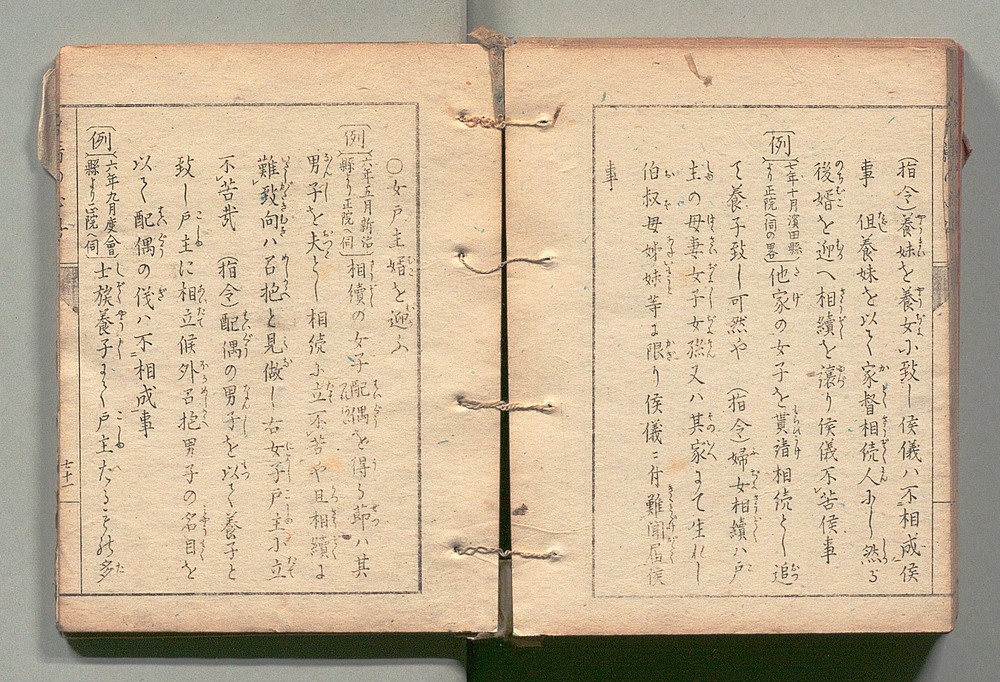 (指令)養妹を養女小致し侯儀ハ不相成侯
事　但養妹を以て家督相続人小し然る
後婿を迎へ相續を譲り侯儀不苦侯事
例 七年十月濱田縣より正院へ伺の畧 他家の女子を貰請相続とし追
て養子致し可然や (指令)婦女相續ハ戸
主の母妻女子女孫又ハ其家まて生れし
伯叔母姉妹等ま限り侯儀ニ付難聞届侯
事
○女戸主婿を迎ふ
例 六年五月新治縣より正院へ伺 相續の女子配偶を得る節ハ其
男子を夫とし相続小立不苦や且相續ま
難致向ハ召抱と見做し右女子戸主小立
不苦哉 (指令)配偶の男子を以て養子と
致し戸主に相立候外召抱男子の名目を
以て配偶の儀ハ不相成事
例 六年九月度會縣より正院へ伺 士族養子まて戸主たる多
七十一